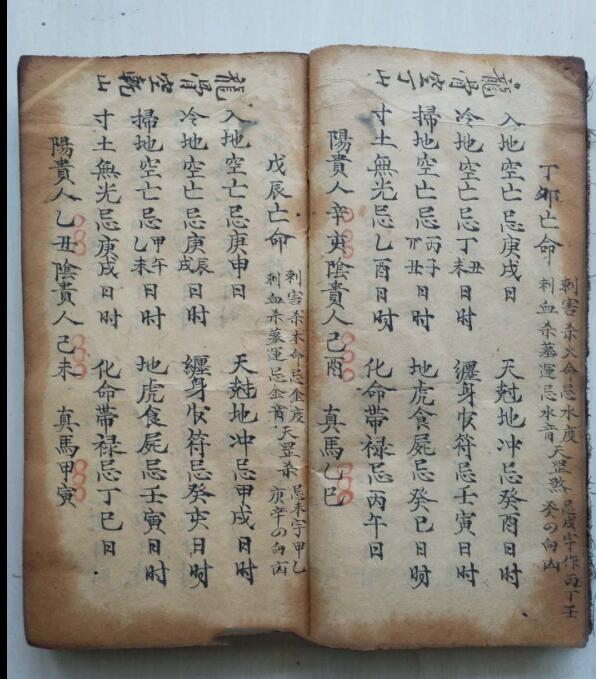 龍骨空丁山
丁卯亡命
刺害杀火命忌水度
刺血杀墓運忌水音
天罡煞
忌戌字作丙丁壬
癸の向凶
入地空亡忌庚戌日
天尅地冲忌癸酉日时
冷地空亡忌丁丑未日时
纏身伏符忌壬寅日时
掃地空亡忌丙子癸丑日时
地虎食屍忌癸巳日时
寸土無光忌乙酉日时
化命帶禄忌丙午日
陽貴人辛亥陰貴人己酉
真馬乙巳
龍骨空乾山
戊辰亡命
刺害杀木命忌金度
刺血杀墓運忌金音
天罡杀
忌未字甲乙
庚辛の向凶
入地空亡忌庚申日
天尅地冲忌甲戌日时
冷地空亡忌庚辰戌日时
纏身伏符忌癸亥日时
掃地空亡忌甲午乙未日时
地虎食屍忌壬寅日时
寸土無光忌庚戌日时
化命帶禄忌丁巳日
陽貴人乙丑陰貴人己未
真馬甲寅